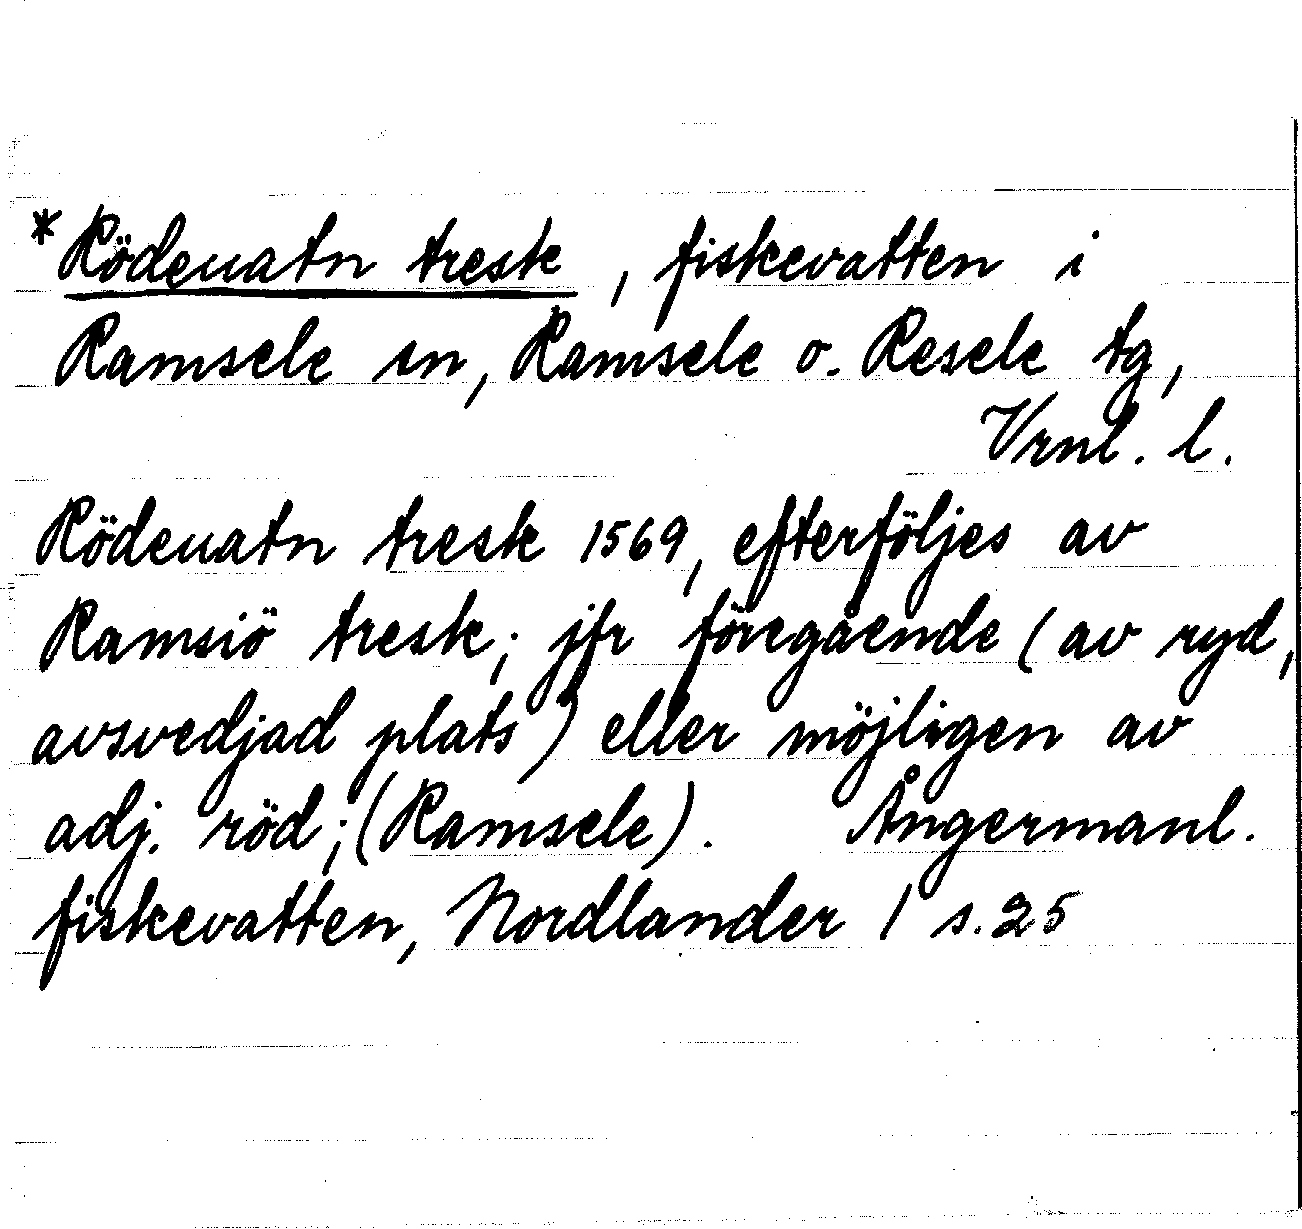 *Rödeuatn tresk, fiskevatten i
Ramsele sn, Ramsele o. Resele tg,
Vrnl. l.
Rödeuatn tresk 1569, efterföljes av
Ramsiö tresk; jfr föregående (av ryd,
avsvedjad plats) eller möjligen av
adj. röd; (Ramsele). Ångermanl.
fiskevatten, Nordlander 1 s. 25